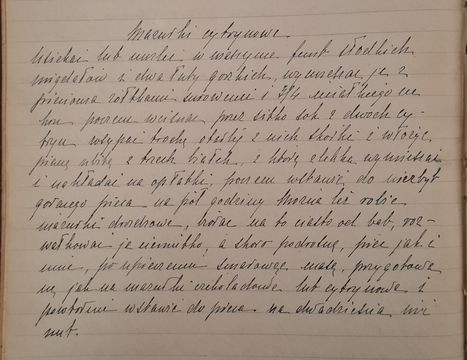 Mazurki cytrynowe.
Usiekać lub umleć w maszynce funt słodkich
migdałów i dwa łuty gorzkich, wymieszać je z
żółtkami surowemi i 3/4 miałkiego cu
kru potem wcisnąć przez sitko sok z dwóch cy-
tryn wsypać trochę otartej z nich skórki i włożyć
pianę ubitą z trzech białek, z którą z lekka wymieszać
i nakładać na opłatki, potem wstawić do niezbyt
gorącego pieca na pół godziny Można też robić
mazurki drożdżowe, biorąc na to ciasto od bab, roz-
wałkować je cieniutko, a skoro podrosną, piec jak i
inne, po upieczeniu smarować masą, przygotowa
ną jak na mazurki czekoladowe lub cytrynowe i
powtórnie wstawić do pieca na dwadzieścia mi
nut.